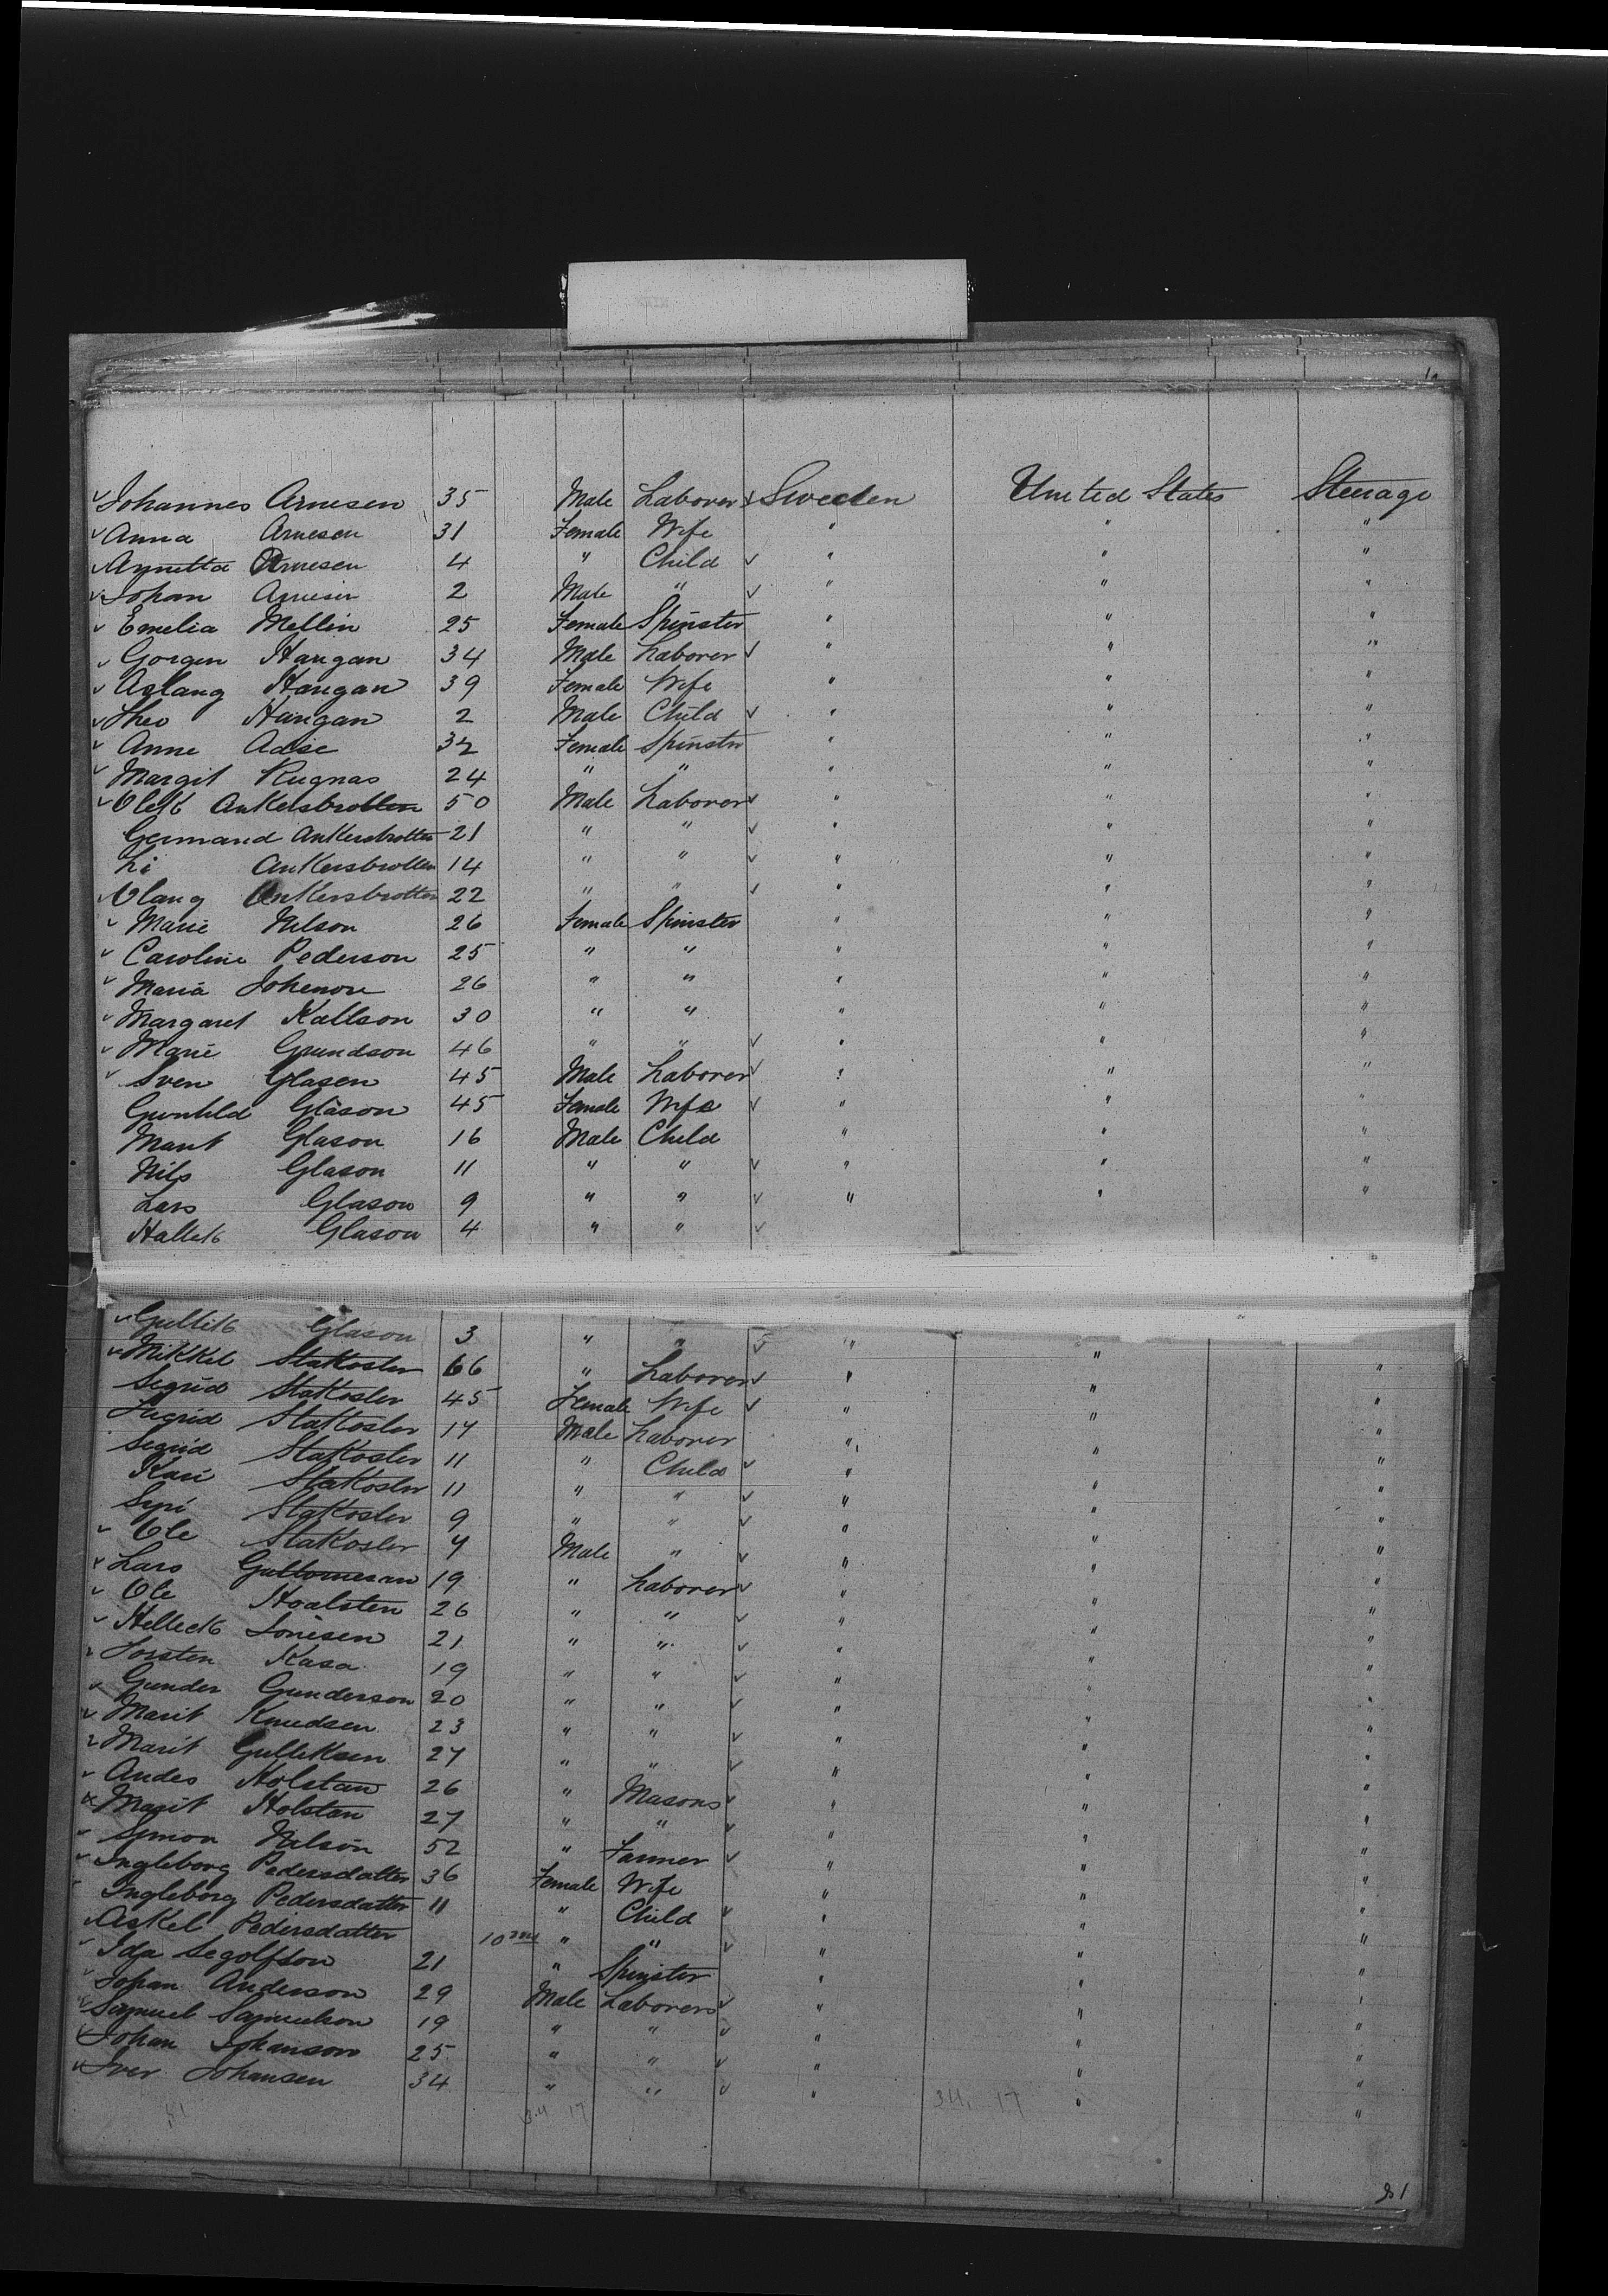 Johannes Arnesen 35 Male Laborer Sweden United States Steerage
Anna Arnesen 31 Female Wife " " "
Annetta Arnesen 4 " Child " " "
Johan Arnesen 2 Male " " " "
Emelia Mellin 25 Female Spinster " " "
Gorgen Haugan 34 Male Laborer " " "
Aslaug Haugan 39 Female Wife " " "
Theo Haugan 2 Male Child " " "
Anne Adse 32 Female Spinster " " "
Margit Rugnas 24 " " " " "
Olek Ankersbrotten 50 Male Laborer " " "
Germand Ankersbrotten 21 " " " " "
Li Ankersbrotten 14 " " " " "
Olaug Ankersbrotten 22 " " " " "
Marie Nelson 26 Female Spinster " " "
Caroline Pederson 25 " " " " "
Maria Johenon 26 " " " " "
Margaret Kallson 30 " " " " "
Marie Grundson 46 " " " " "
Sven Glasen 45 Male Laborer " " "
Gunhild Glason 45 Female Wife " " "
Marit Glason 16 Male Child " " "
Nils Glason 11 " " " " "
Lars Glason 9 " " " " "
Hallek Glason 4 " "
Gullik Glason 3 " " " "
Mikkel Stakosler 66 " Laborer " " "
Segrid Stakosler 45 Female Wife " " "
Stakosler 17 Male Laborer " " "
Segrid Stakosler 11 " Child " " "
Kari Stakosler 11 " " " " "
Syri Stakosler 9 " " " " "
Ole Stakosler 4 Male " " " "
Lars Guttormesan 19 " Laborer " " "
Ole Hoalsten 26 " " " " "
Helleck Sonesen 21 " " " " "
Torsten Kasa 19 " " " " "
Gunder Gunderson 20 " " " " "
Marit Knudsen 23 " " " " "
Marit Gulleksen 27 " " " " "
Andes Holstan 26 " Masons " " "
Marit Holstan 27 " " " " "
Simon Nelson 52 " Farmer " " "
Ingleborg Pedersdatter 36 Female Wife " " "
Ingleborg Pedersdatter 11 " Child " " "
Askel Pedersdatter 10 mos " " " " "
Ida Segolfson 21 " Spinster " " "
Johan Anderson 29 Male Laborers " " "
Samuel Samuelson 19 " " " " "
Johan Johanson 25 " " " " "
Iver Johansen 34 " " " " "
34 17 34 17